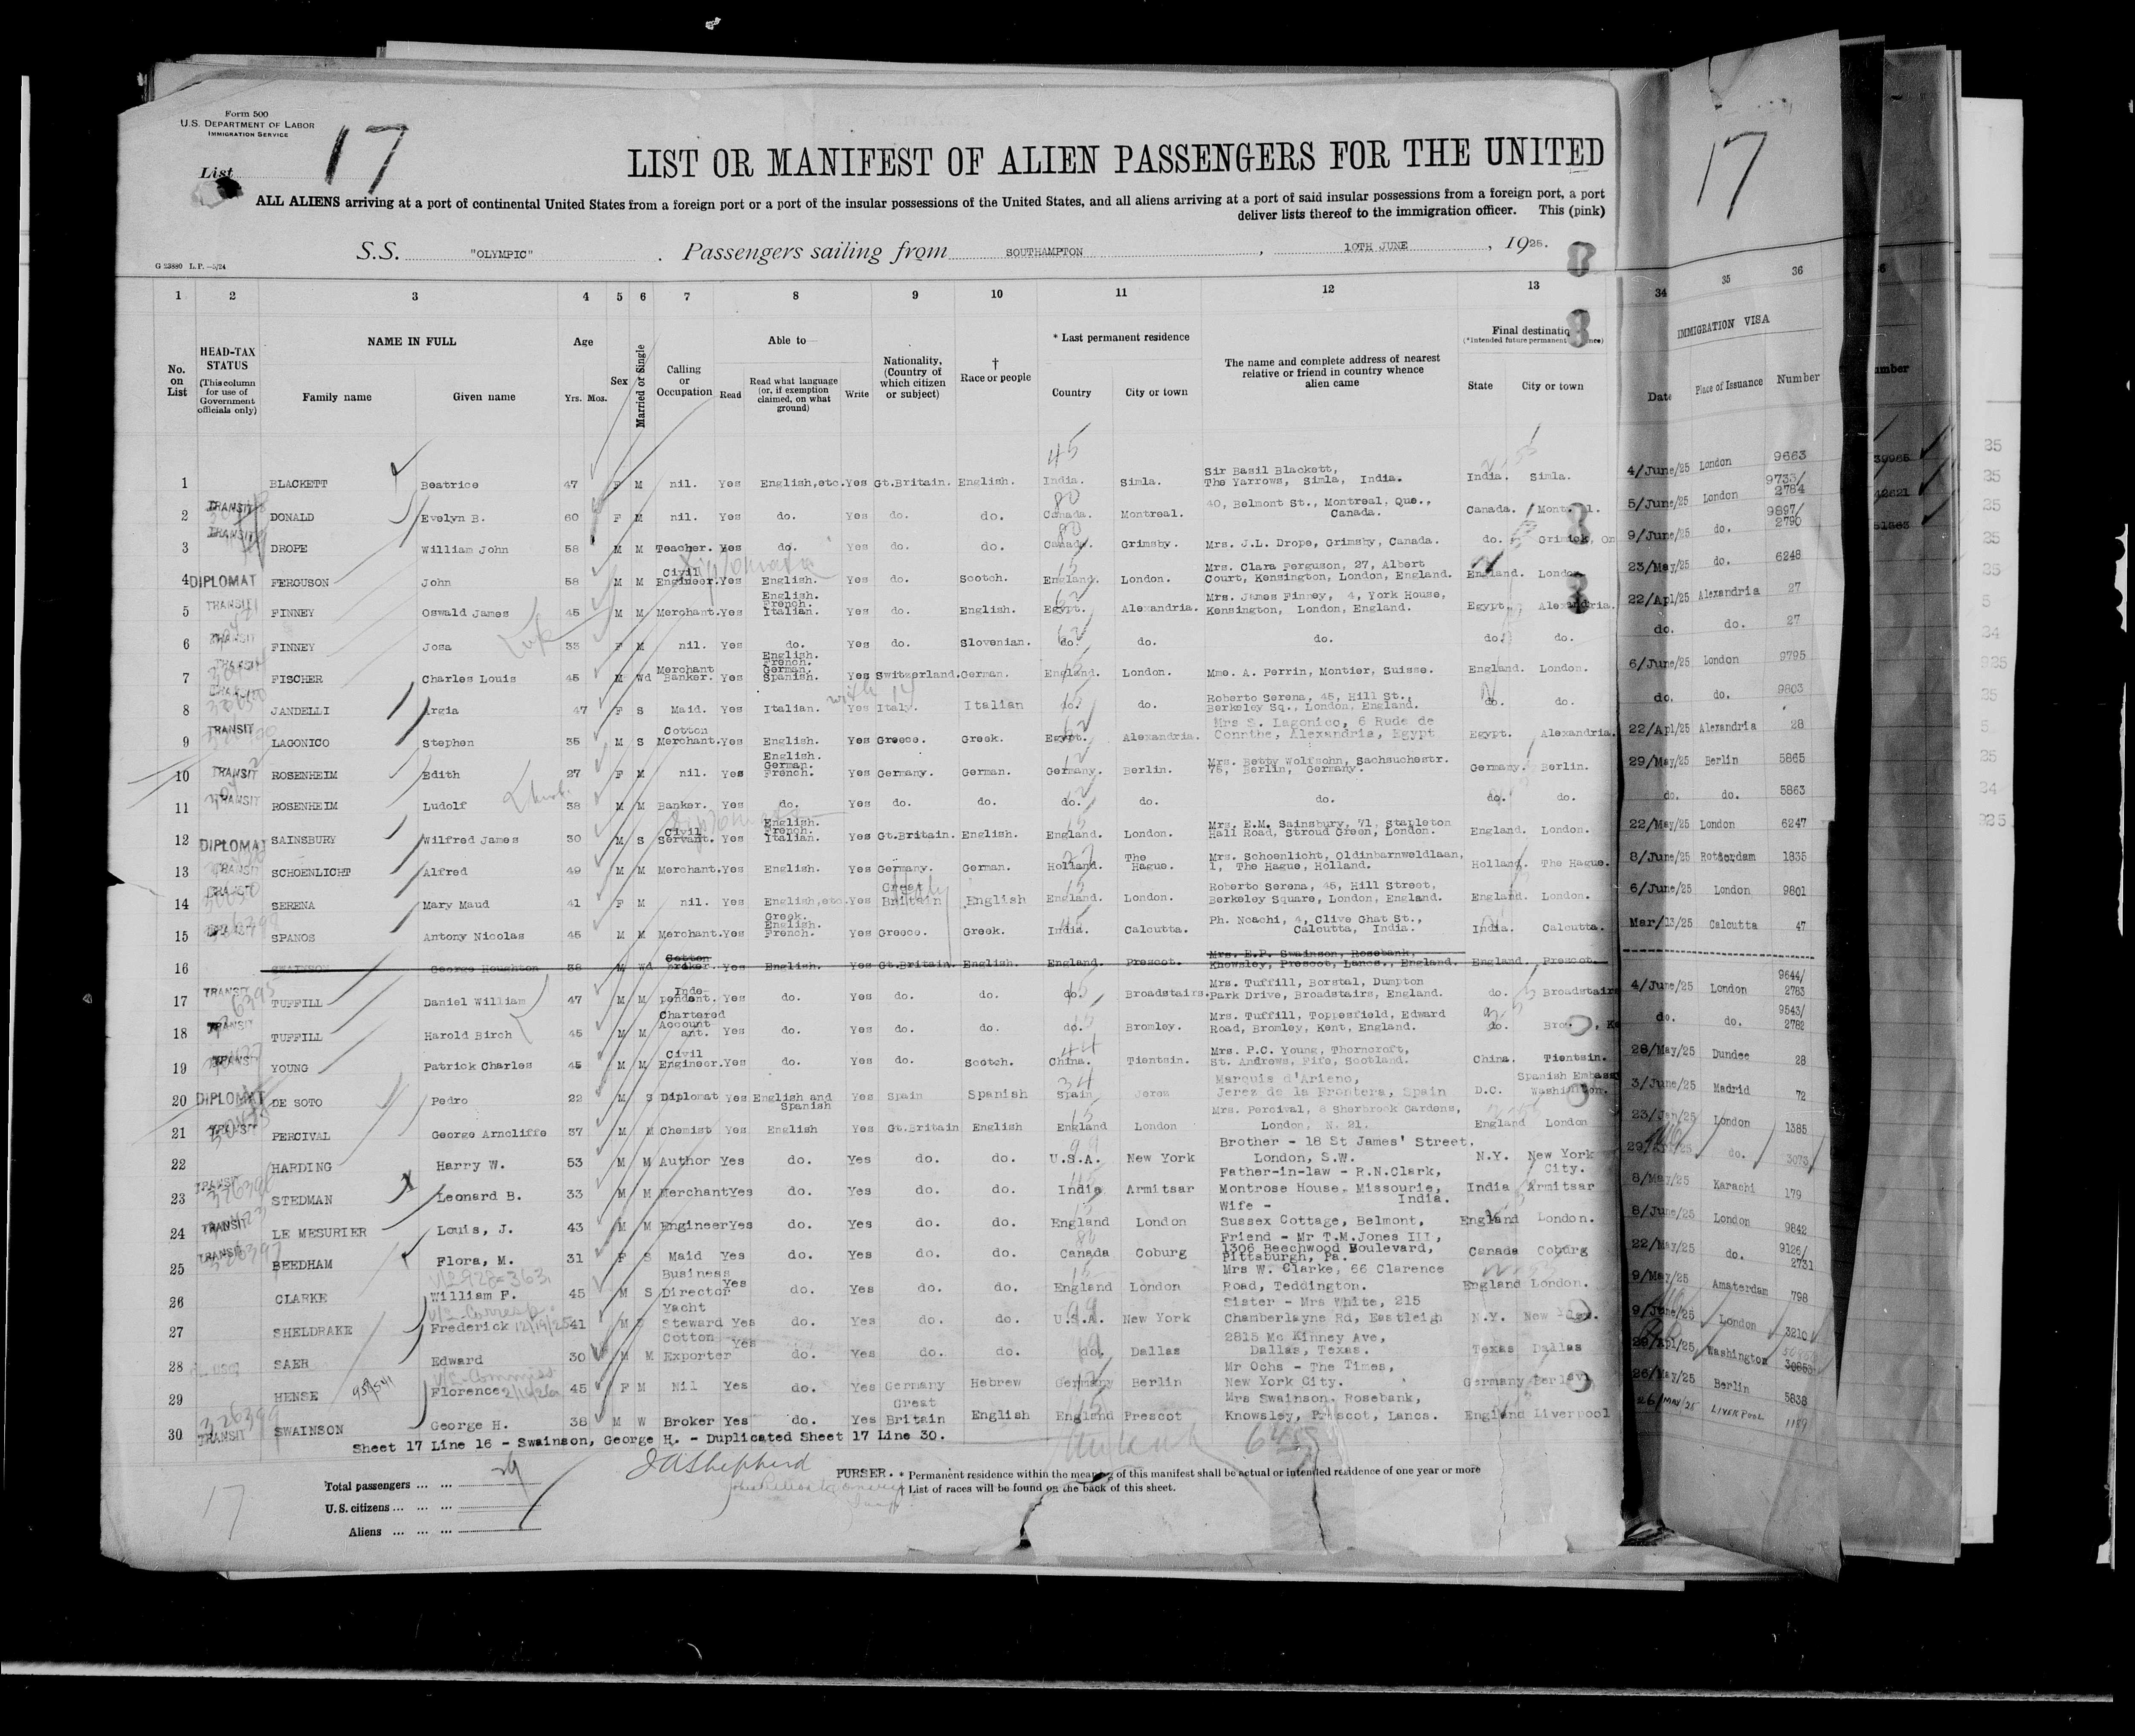 Form 500
U.S. DEPARTMENT OF LABOR
IMMIGRATION SERVICE
List 17
LIST OR MANIFEST OF ALIEN PASSENGERS FOR THE UNITED
ALL ALIENS arriving at a port of continental United States from a foreign port or a port of the insular possessions of the United States, and all aliens arriving at a port of said insular possessions from a foreign port, a port
deliver lists thereof to the immigration officer. This (pink)
S.S. "OLYMPIC" . Passengers sailing from SOUTHAMPTON , 10TH JUNE , 1925.
G 23880 L.P.—5/24
17
1 2 3 4 5 6 7 8 9 10 11 12 13 34 35 36
No. on List
HEAD-TAX STATUS (This column for use of Government officials only)
NAME IN FULL
Family name Given name
Age
Yrs. Mos.
Sex
Married or Single
Calling or Occupation
Able to
Read Read what language (or, if exemption claimed, on what ground) Write
Nationality, (Country of which citizen or subject)
† Race or people
* Last permanent residence
Country City or town
The name and complete address of nearest relative or friend in country whence alien came
Final destination
State City or town
IMMIGRATION VISA
Date Place of Issuance Number
1 BLACKETT Beatrice 47 F M nil. Yes English,etc. Yes Gt.Britain. English. India. Simla. Sir Basil Blackett, The Yarrows, Simla, India. India. Simla. 4/June/25 London 9663
2 TRANSIT DONALD Evelyn B. 60 F M nil. Yes do. Yes do. do. Canada. Montreal. 40, Belmont St., Montreal, Que., Canada. Canada. 5/June/25 London 9733/2784
3 TRANSIT DROPE William John 58 M M Teacher. Yes do. Yes do. do. Canada. Grimsby. Mrs. J.L. Drope, Grimsby, Canada. do. 9/June/25 do. 9897/2790
4 DIPLOMAT FERGUSON John 58 M M Civil Engineer. Yes English. Yes do. Scotch. England. London. Mrs. Clara Ferguson, 27, Albert Court, Kensington, London, England. England. London 23/May/25 do. 6248
5 TRANSIT FINNEY Oswald James 45 M M Merchant. Yes English. French. Italian. Yes do. English. Egypt. Alexandria. Mrs. James Finney, 4, York House, Kensington, London, England. Egypt. Alexandria. 22/Apl/25 Alexandria 27
6 TRANSIT FINNEY Josa 33 F M nil. Yes do. Yes do. Slovenian. do. do. do. do. do. do. do. 27
7 TRANSIT FISCHER Charles Louis 45 M Wd Merchant Banker. Yes English. French. German. Spanish. Yes Switzerland. German. England. London. Mme. A. Perrin, Montier, Suisse. England. London. 6/June/25 London 9795
8 JANDELLI Argia 47 F S Maid. Yes Italian. Yes Italy. Italian do. do. Roberto Serena, 45, Hill St., Berkeley Sq., London, England. do. do. do. do. 9803
9 TRANSIT LAGONICO Stephen 35 M S Cotton Merchant. Yes English. Yes Greece. Greek. Egypt. Alexandria. Mrs S. Lagonico, 6 Rude de Connthe, Alexandria, Egypt Egypt. Alexandria. 22/Apl/25 Alexandria 28
10 TRANSIT ROSENHEIM Edith 27 F M nil. Yes English. German. French. Yes Germany. German. Germany. Berlin. Mrs. Betty Wolfsohn, Sachsuchestr. 75, Berlin, Germany. Germany. Berlin. 29/May/25 Berlin 5865
11 TRANSIT ROSENHEIM Ludolf 38 M M Banker. Yes do. Yes do. do. do. do. do. do. do. do. do. 5863
12 DIPLOMAT SAINSBURY Wilfred James 30 M S Civil Servant. Yes English. French. Italian. Yes Gt.Britain. English. England. London. Mrs. E.M. Sainsbury, 71, Stapleton Hall Road, Stroud Green, London. England. London. 22/May/25 London 6247
13 TRANSIT SCHOENLICHT Alfred 49 M M Merchant. Yes English. Yes Germany. German. Holland. The Hague. Mrs. Schoenlicht, Oldinbarnweldlaan, 1, The Hague, Holland. Holland. The Hague. 8/June/25 Rotterdam 1835
14 TRANSIT SERENA Mary Maud 41 F M nil. Yes English,etc. Yes Great Britain English England. London. Roberto Serena, 45, Hill Street, Berkeley Square, London, England. England. London. 6/June/25 London 9801
15 SPANOS Antony Nicolas 45 M M Merchant. Yes Greek. English. French. Yes Greece. Greek. India. Calcutta. Ph. Ncachi, 4, Clive Ghat St., Calcutta, India. India. Calcutta. Mar/13/25 Calcutta 47
16 SWAINSON George Houghton 38 M Wd Cotton Broker. Yes English. Yes Gt.Britain. English. England. Prescot. Mrs. E.P. Swainson, Rosebank, Knowsley, Prescot, Lancs., England. England. Prescot.
17 TRANSIT TUFFILL Daniel William 47 M M Inde pendent. Yes do. Yes do. do. do. Broadstairs. Mrs. Tuffill, Borstal, Dumpton Park Drive, Broadstairs, England. do. Broadstairs 4/June/25 London 9544/2783
18 TRANSIT TUFFILL Harold Birch 45 M M Chartered Account ant. Yes do. Yes do. do. do. Bromley. Mrs. Tuffill, Toppesfield, Edward Road, Bromley, Kent, England. do. do. do. 9543/2782
19 TRANSIT YOUNG Patrick Charles 45 M M Civil Engineer. Yes do. Yes do. Scotch. China. Tientsin. Mrs. P.C. Young, Thorncroft, St. Andrews, Fife, Scotland. China. Tientsin. 28/May/25 Dundee 28
20 DIPLOMAT DE SOTO Pedro 22 M S Diplomat Yes English and Spanish Yes Spain Spanish Spain Jerez Marquis d'Arieno, Jerez de la Frontera, Spain D.C. Spanish Embassy Washington. 3/June/25 Madrid 72
21 TRANSIT PERCIVAL George Arncliffe 37 M M Chemist Yes English Yes Gt.Britain English England London Mrs. Percival, 8 Sherbrook Gardens, London, N. 21. England London 23/Jan/25 London 1385
22 HARDING Harry W. 53 M M Author Yes do. Yes do. do. U.S.A. New York Brother - 18 St James' Street. London, S.W. N.Y. New York City. do. 3073
23 TRANSIT 326396 STEDMAN Leonard B. 33 M M Merchant Yes do. Yes do. do. India Armitsar Father-in-law - R.N.Clark, Montrose House. Missourie, India. India Armitsar 8/May/25 Karachi 179
24 TRANSIT LE MESURIER Louis, J. 43 M M Engineer Yes do. Yes do. do. England London Wife - Sussex Cottage, Belmont, England London. 8/June/25 London 9842
25 TRANSIT 326397 BEEDHAM Flora, M. 31 F S Maid Yes do. Yes do. do. Canada Coburg Friend - Mr T.M.Jones III, 1306 Beechwood Boulevard, Pittsburgh, Pa. Canada Coburg 22/May/25 do. 9126/2731
26 CLARKE William F. 45 M S Business Director Yes do. Yes do. do. England London Mrs W. Clarke, 66 Clarence Road, Teddington. England London. 9/May/25 Amsterdam 798
27 SHELDRAKE Frederick 12/19/25 41 M Yacht Steward Yes do. Yes do. do. U.S.A. New York Sister - Mrs White, 215 Chamberlayne Rd, Eastleigh N.Y. New 9/June/25 London 3210
28 SAER Edward 30 M M Cotton Exporter Yes do. Yes do. do. do. Dallas 2815 Mc Kinney Ave, Dallas, Texas. Texas Dallas 29/Apl/25 Washington
29 HENSE Florence 45 F M Nil Yes do. Yes Germany Hebrew Germany Berlin Mr Ochs - The Times, New York City. Germany Berlin 26/May/25 Berlin 5838
30 326399 TRANSIT SWAINSON George H. 38 M W Broker Yes do. Yes Great Britain English England Prescot Mrs Swainson, Rosebank, Knowsley, Prescot, Lancs. England Liverpool 26/MAY/25 LIVERPOOL 1189
Sheet 17 Line 16 - Swainson, George H. - Duplicated Sheet 17 Line 30.
JA Shepherd PURSER.
* Permanent residence within the meaning of this manifest shall be actual or intended residence of one year or more
† List of races will be found on the back of this sheet.
Total passengers ... ... 29
U.S. citizens ... ... ...
Aliens ... ... ...
17